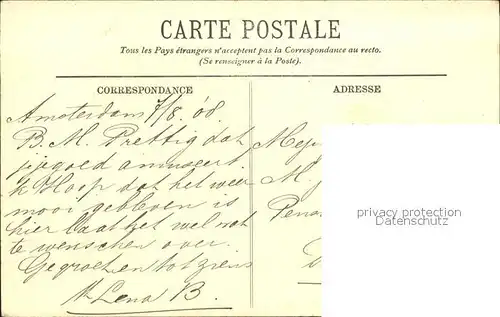 CARTE POSTALE
Tous les Pays étrangers n'acceptent pas la Correspondance au recto.
(Se renseigner à la Poste).
CORRESPONDANCE
ADRESSE
Amsterdam 7/8. '08.
B. M. Prettig dat
je je goed amuseert.
Ik Hoop dat het weer
mooi gebleven is
hier laat het wel wat
te wenschen over.
Gegroet en tot ziens
Lena B.
Mej
M. J
Pen
privacy protection
Datenschutz